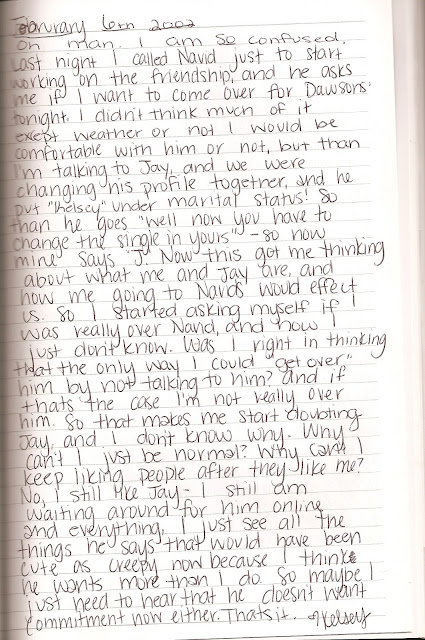 February 6th 2002
Oh man. I am so confused.
Last night I called Navid just to start
working on the friendship, and he asks
me if I want to come over for Dawsons'
tonight. I didn't think much of it
exept weather or not I would be
comfortable with him or not, but than
I'm talking to Jay, and we were
changing his profile together, and he
put "Kelsey" under marital status! So
than he goes "well now you have to
change the single in yours" - so now
mine says "J". Now this got me thinking
about what me and Jay are, and
how me going to Navids would effect
us. So I started asking myself if I
was really over Navid, and now I
just don't know. Was I right in thinking
that the only way I could "get over"
him by not talking to him? and if
thats the case I'm not really over
him. So that makes me start doubting
Jay, and I don't know why. Why
can't I just be normal? Why can't I
keep liking people after they like me?
No, I still like Jay - I still am
waiting around for him online
and everything, I just see all the
things he says that would have been
cute as creepy now because I think
he wants more than I do. So maybe I
just need to hear that he doesn't want
commitment now either. Thats it. Kelsey